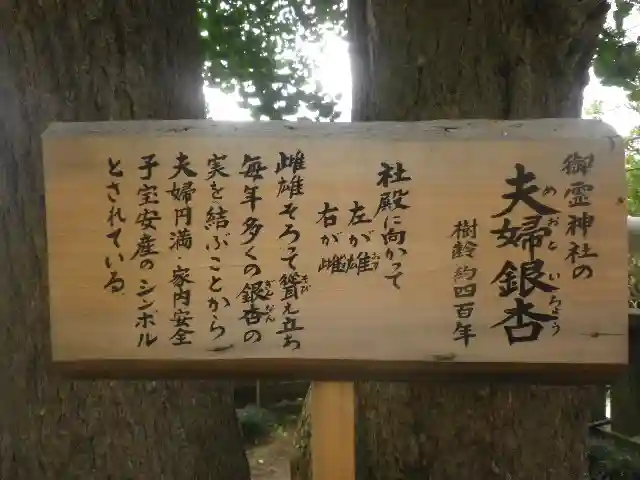 御霊神社の
夫婦銀杏
めおといちょう
樹齢約四百年
社殿に向かって
左が雄
おす
右が雌
雌雄そろって聳え立ち
そび
毎年多くの銀杏の
ぎんなん
実を結ぶことから
夫婦円満・家内安全
子宝安産のシンボル
とされている。